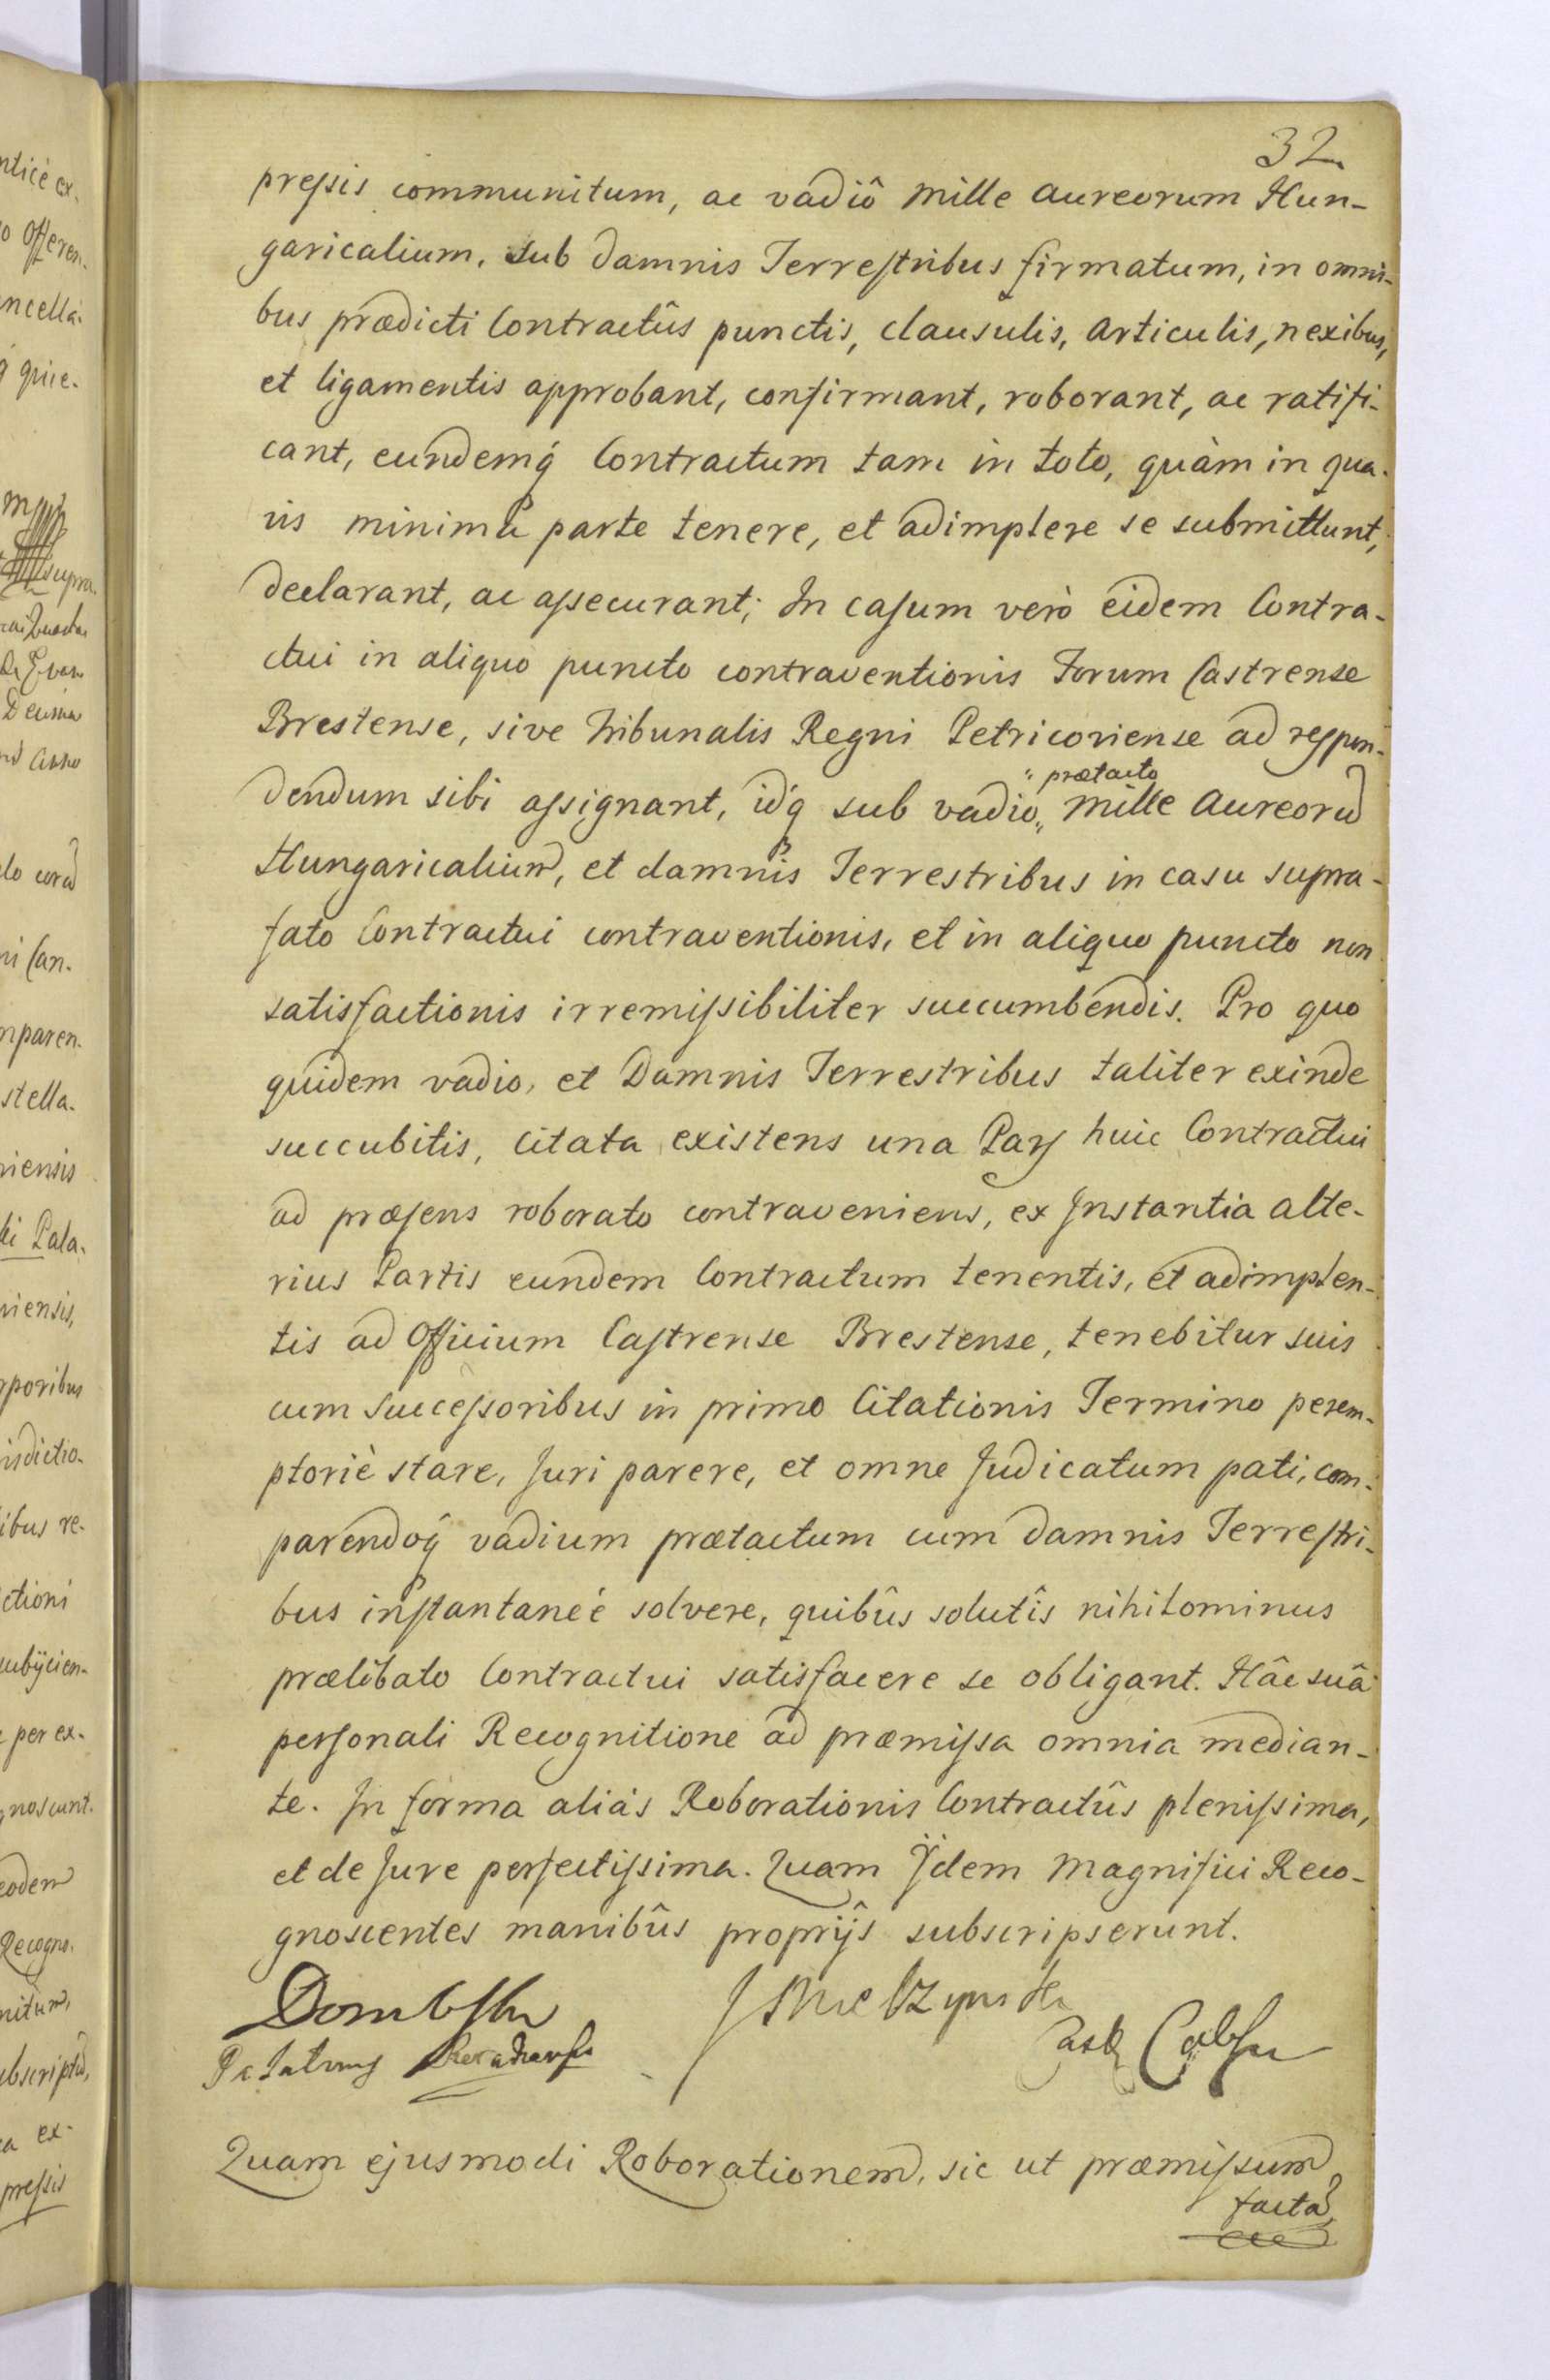 32
pressis communitum, ac vadiô mille aureorum Hun-
garicalium, sub damnis Terrestribus firmatum, in omni-
bus prædicti Contractûs punctis, clausulis, articulis, nexibus,
et ligamentis approbant, confirmant, roborant, ac ratifi-
cant, eundemq́ Contractum tam in toto, quàm in qua-
vis minima parte tenere, et adimplere se submittunt,
declarant, ac assecurant; In casum verò eidem Contra-
ctui in aliquo puncto contraventionis Forum Castrense
Brestense, sive Tribunalis Regni Petricoviense ad respon-
" prætacto
dendum sibi assignant, idq́ sub vadio „ mille Aureorū
Hungaricalium, et damnis Terrestribus in casu supra-
fato Contractui contraventionis, et in aliquo puncto non
satisfactionis irremissibiliter succumbendis. Pro quo
quidem vadio, et Damnis Terrestribus taliter exinde
succubitis, citata existens una Pars huic Contractui
ad præsens roborato contraveniens, ex Instantia alte-
rius Partis eundem Contractum tenentis, et adimplen-
tis ad Officium Castrense Brestense, tenebitur suis
cum successoribus in primo Citationis Termino perem-
ptoriè stare, Juri parere, et omne Judicatum pati, com-
parendoq́ vadium prætactum cum damnis Terrestri-
bus instantaneè solvere, quibûs solutîs nihilominus
prælibato Contractui satisfacere se obligant. Hâc suâ
personali Recognitione ad præmissa omnia median-
te. In forma aliàs Roborationis Contractûs plenissima,
et de Jure perfectissima. Quam Ijdem Magnifici Reco-
gnoscentes manibûs propriîs subscripserunt.
Dombsky
Quam ejusmodi Roborationem, sic ut præmissum
factā